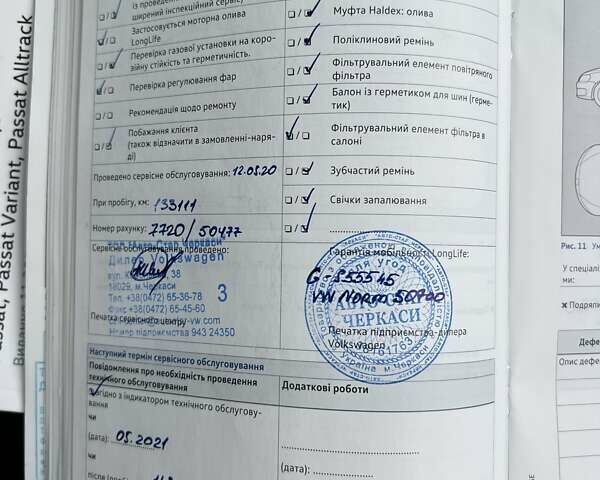 із проведенням
ширений інспекційний сервіс)
Застосовується моторна олива
LongLife
Перевірка газової установки на коро-
зійну стійкість та герметичність.
Перевірка регулювання фар
Рекомендація щодо ремонту
Побажання клієнта
(також відзначити в замовленні-наря-
ді)
Проведено сервісне обслуговування: 12.05.20
При пробігу, км: 133111
Номер рахунку: 7720 / 50477
Сервісне обслуговування проведено:
Дилер Volkswagen
38
18029, м.Черкаси
Тел. +38(0472) 65-36-78
Факс +38(0472) 65-45-60
3
Номер підприємства 943 24350
Печатка сервісного центру
Муфта Haldex: олива
Поліклиновий ремінь
Фільтрувальний елемент повітряного
фільтра
Балон із герметиком для шин (герме-
тик)
Фільтрувальний елемент фільтра в
салоні
Зубчастий ремінь
Свічки запалювання
Гарантія мобільності LongLife:
G-555545
VW Norm 50700
ЧЕРКАСИ
Печатка підприємства-дилера
Volkswagen
Україна м.Черкаси
Наступний термін сервісного обслуговування
Повідомлення про необхідність проведення
технічного обслуговування
Згідно з індикатором технічного обслугову-
вання
чи
(дата): 05.2021
чи
після
Додаткові роботи
(дата):
Passat, Passat Variant, Passat Alltrack
Рис. 11
У спеціалі
Дефе
Опис дефе